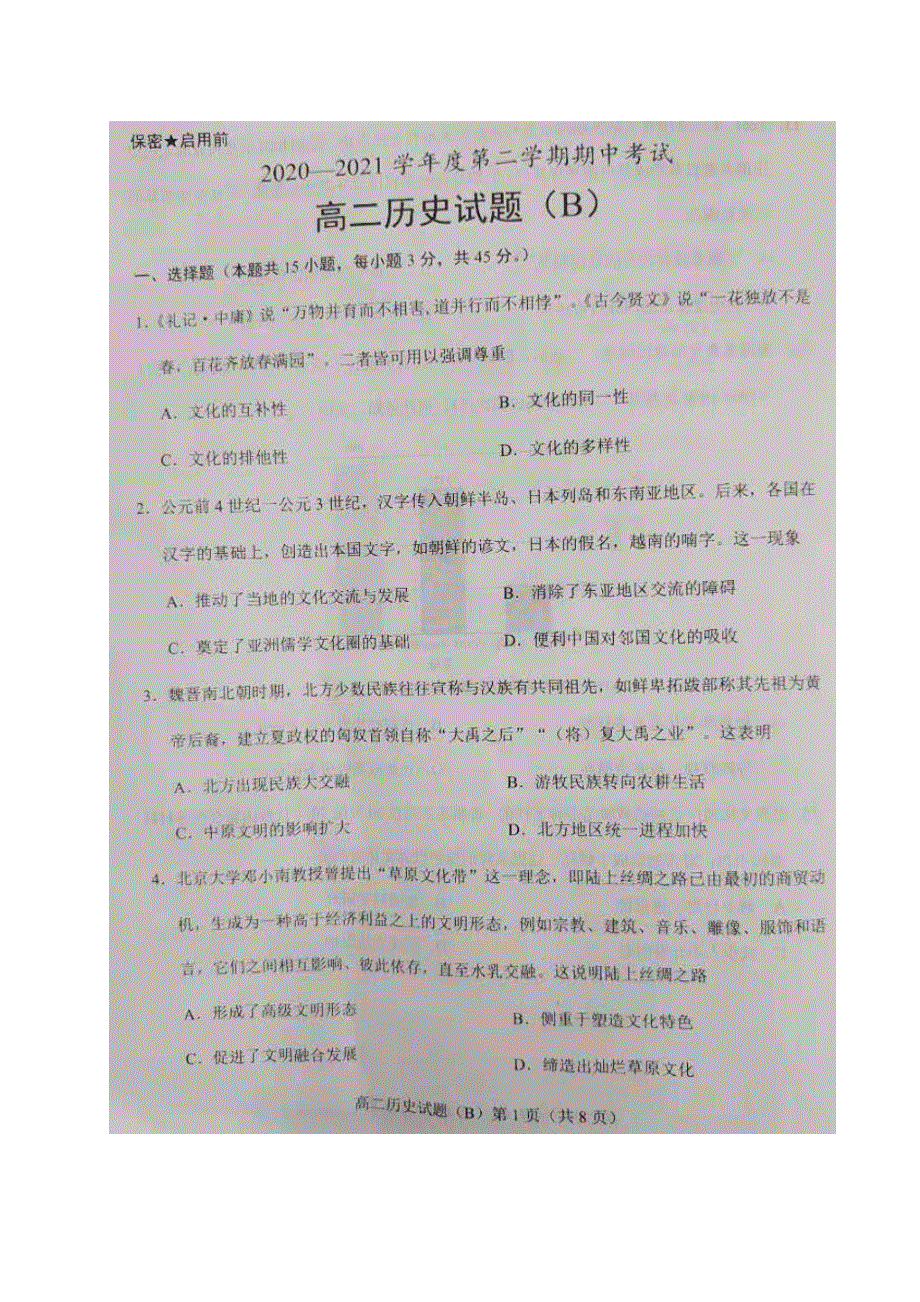 保密★启用前
2020—2021学年度第二学期期中考试
高二历史试题（B）
一、选择题（本题共15小题，每小题3分，共45分。）
1.《礼记·中庸》说“万物并育而不相害,道并行而不相悖”。《古今贤文》说“一花独放不是
春，百花齐放春满园”。二者皆可用以强调尊重
A．文化的互补性 B．文化的同一性
C．文化的排他性 D．文化的多样性
2．公元前4世纪—公元3世纪，汉字传入朝鲜半岛、日本列岛和东南亚地区。后来，各国在
汉字的基础上，创造出本国文字，如朝鲜的谚文，日本的假名，越南的喃字。这一现象
A．推动了当地的文化交流与发展 B．消除了东亚地区交流的障碍
C．奠定了亚洲儒学文化圈的基础 D．便利中国对邻国文化的吸收
3．魏晋南北朝时期，北方少数民族往往宣称与汉族有共同祖先，如鲜卑拓跋部称其先祖为黄
帝后裔，建立夏政权的匈奴首领自称“大禹之后”“（将）复大禹之业”。这表明
A．北方出现民族大交融 B．游牧民族转向农耕生活
C．中原文明的影响扩大 D．北方地区统一进程加快
4．北京大学邓小南教授曾提出“草原文化带”这一理念，即陆上丝绸之路已由最初的商贸动
机，生成为一种高于经济利益之上的文明形态，例如宗教、建筑、音乐、雕像、服饰和语
言，它们之间相互影响、彼此依存，直至水乳交融。这说明陆上丝绸之路
A．形成了高级文明形态 B．侧重于塑造文化特色
C．促进了文明融合发展 D．缔造出灿烂草原文化
高二历史试题（B）第1页（共8页）